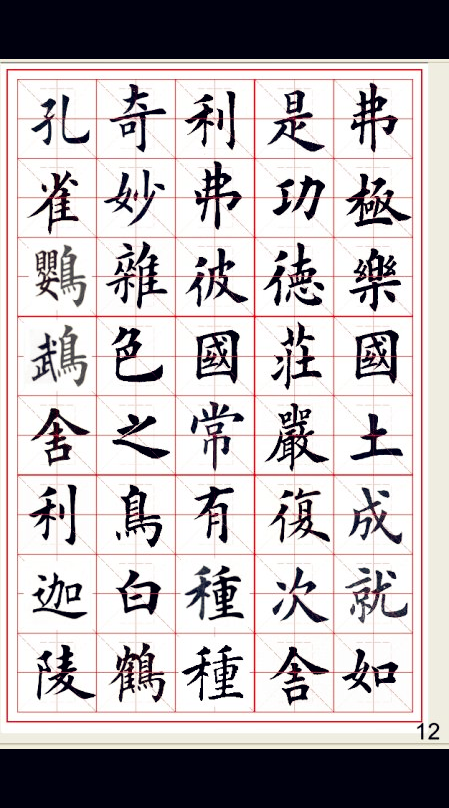 弗極樂國土成就如
是功德莊嚴復次舍
利弗彼國常有種種
奇妙雜色之鳥白鶴
孔雀鸚鵡舍利迦陵
12